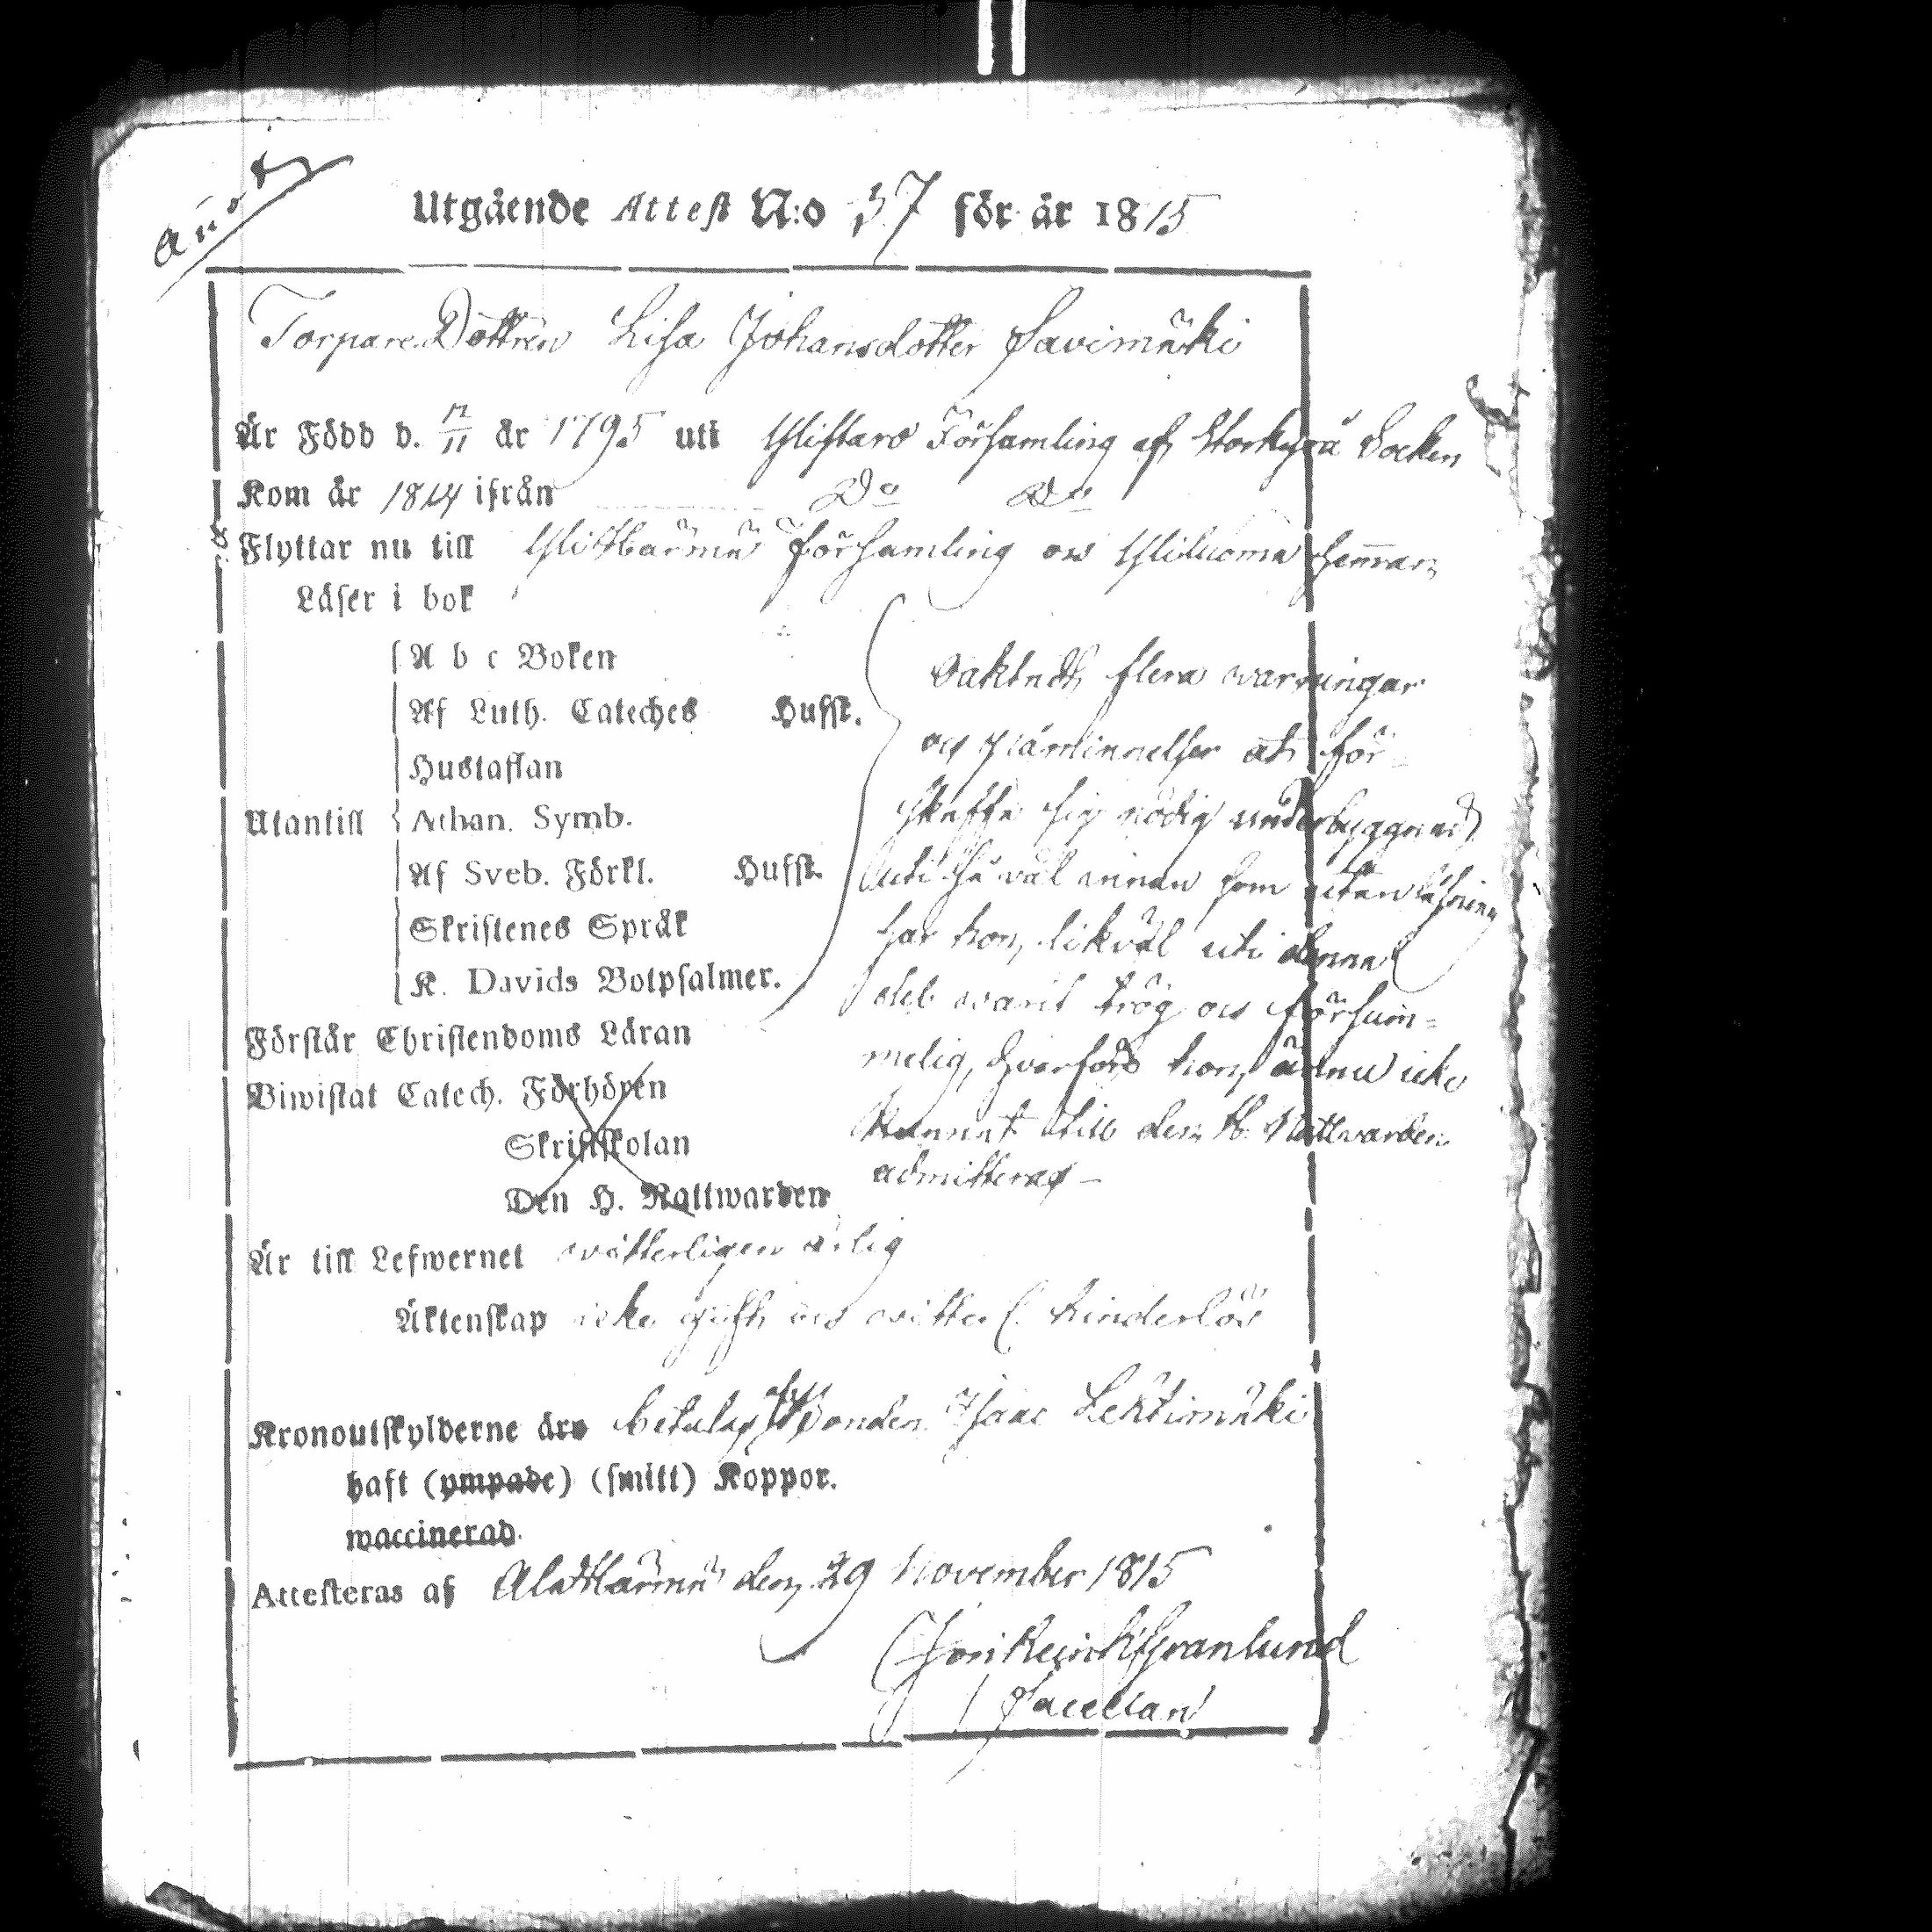 Utgående Attest N:o 37 för år 1815
Torpare Dottren Lisa Johansdotter Savimäki
Är Född d. 12/11 år 1795 uti Ylistaro Församling af Storkyrå Socken
Kom år 1814 ifrån Do Do
Flyttar nu till Yli Härmä Församling oc Yliluoma hemman
Läser i bok
A b c Boken
Af Luth. Cateches Hufst.
Hustaflan
Utantill Athan. Symb.
Af Sveb. Förkl. Hufst.
Skriftenes Språk
K. Davids Botpsalmer.
Oaktadt flera warningar
oc påminnelser at för-
skaffa sig nödig underbyggnad
uti så väl innan som utan läsning
har hon likväl uti denna
del warit trög oc försum-
melig, hvarföre hon ännu icke
kunnat till den H. Nattvarden
admitteras –
Förstår Christendoms Läran
Biwistat Catech. Förhören
Skriftskolan
Den H. Nattwarden
Är till Lefwernet witterligen ärlig
Äktenskap icke gift oc witterl. hinderlös
Kronoutskylderne äro betalas af Bonden Isaac Lehtimäki
haft (ympade) (smitt) Koppor.
waccinerad.
Attesteras af Ala Härmä den 29 November 1815
Granlund
Sacellan